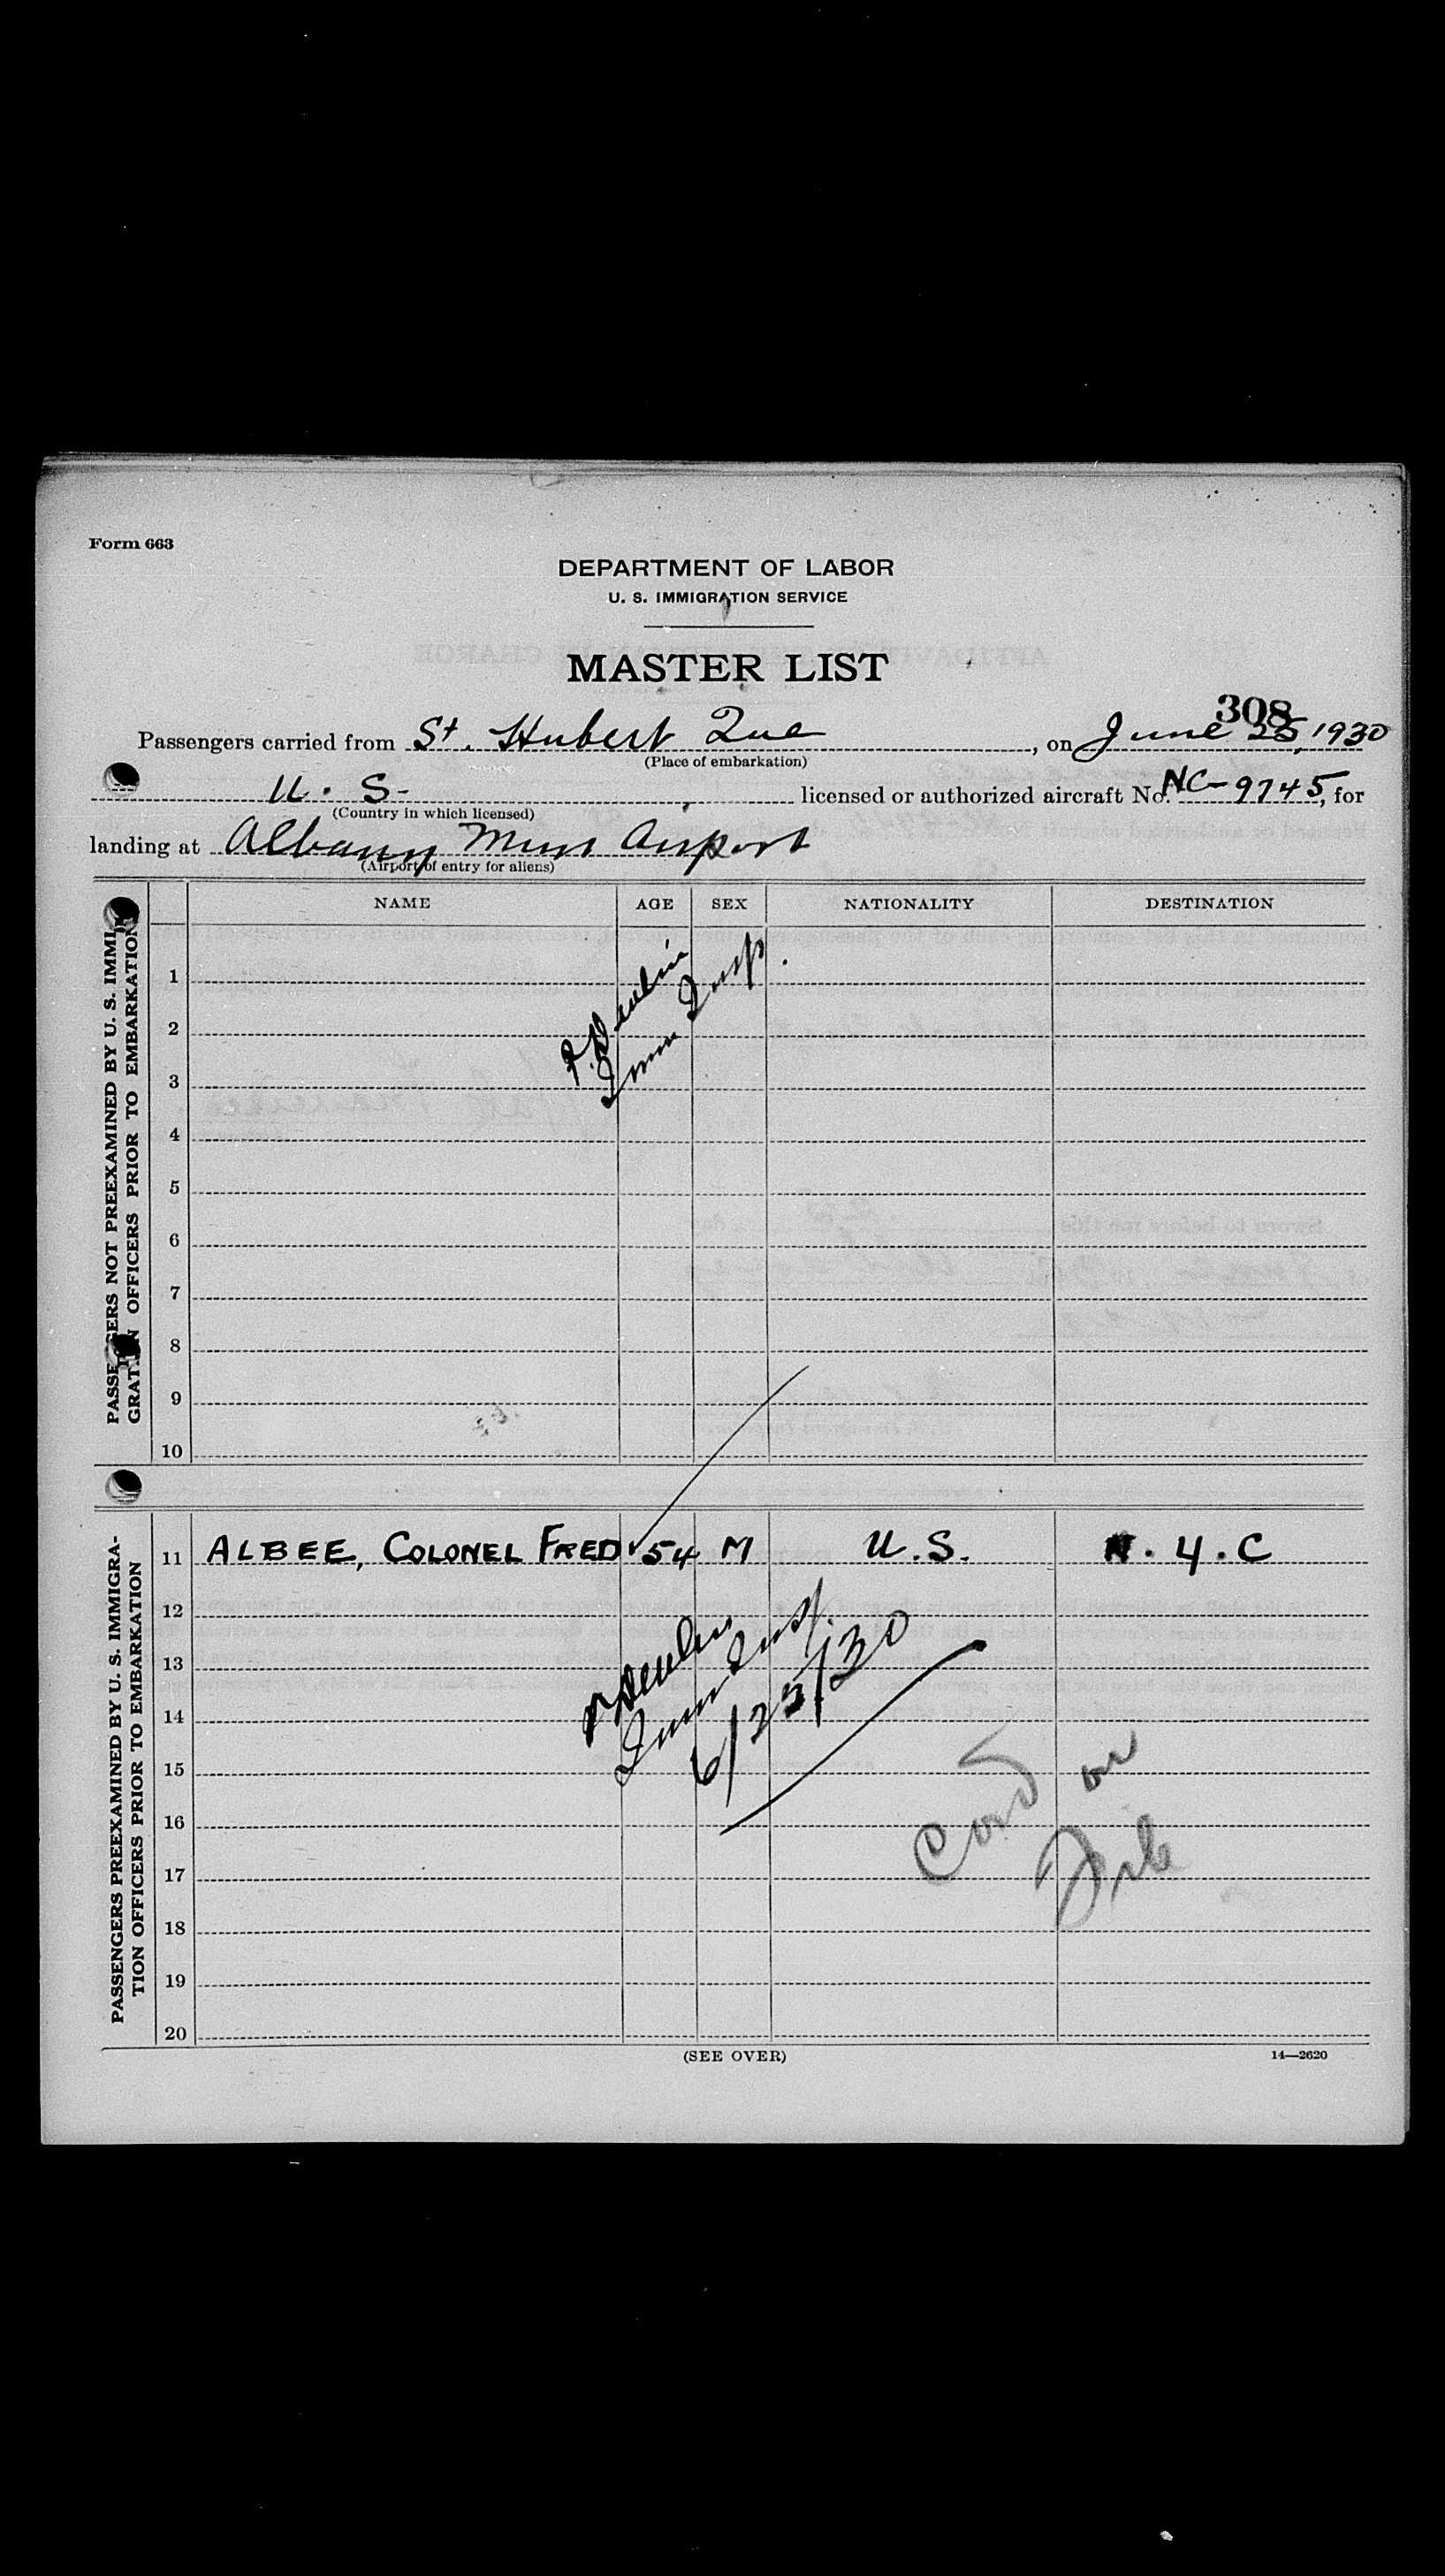 Form 663
DEPARTMENT OF LABOR
U. S. IMMIGRATION SERVICE
MASTER LIST
308
Passengers carried from St. Hubert Que, on June 25, 1930
(Place of embarkation)
U. S. licensed or authorized aircraft No. NC-9745, for
(Country in which licensed)
landing at Albany Mun Airport
(Airport of entry for aliens)
NAME AGE SEX NATIONALITY DESTINATION
PASSENGERS NOT PREEXAMINED BY U. S. IMMI-
GRATION OFFICERS PRIOR TO EMBARKATION
1
2
3
4
5
6
7
8
9
10
Imm Insp.
PASSENGERS PREEXAMINED BY U. S. IMMIGRA-
TION OFFICERS PRIOR TO EMBARKATION
11 ALBEE, COLONEL FRED 54 M U.S. N.Y.C
12
13
14
15
16
17
18
19
20
Imm Insp.
6/25/30
on
File
(SEE OVER)
14—2620